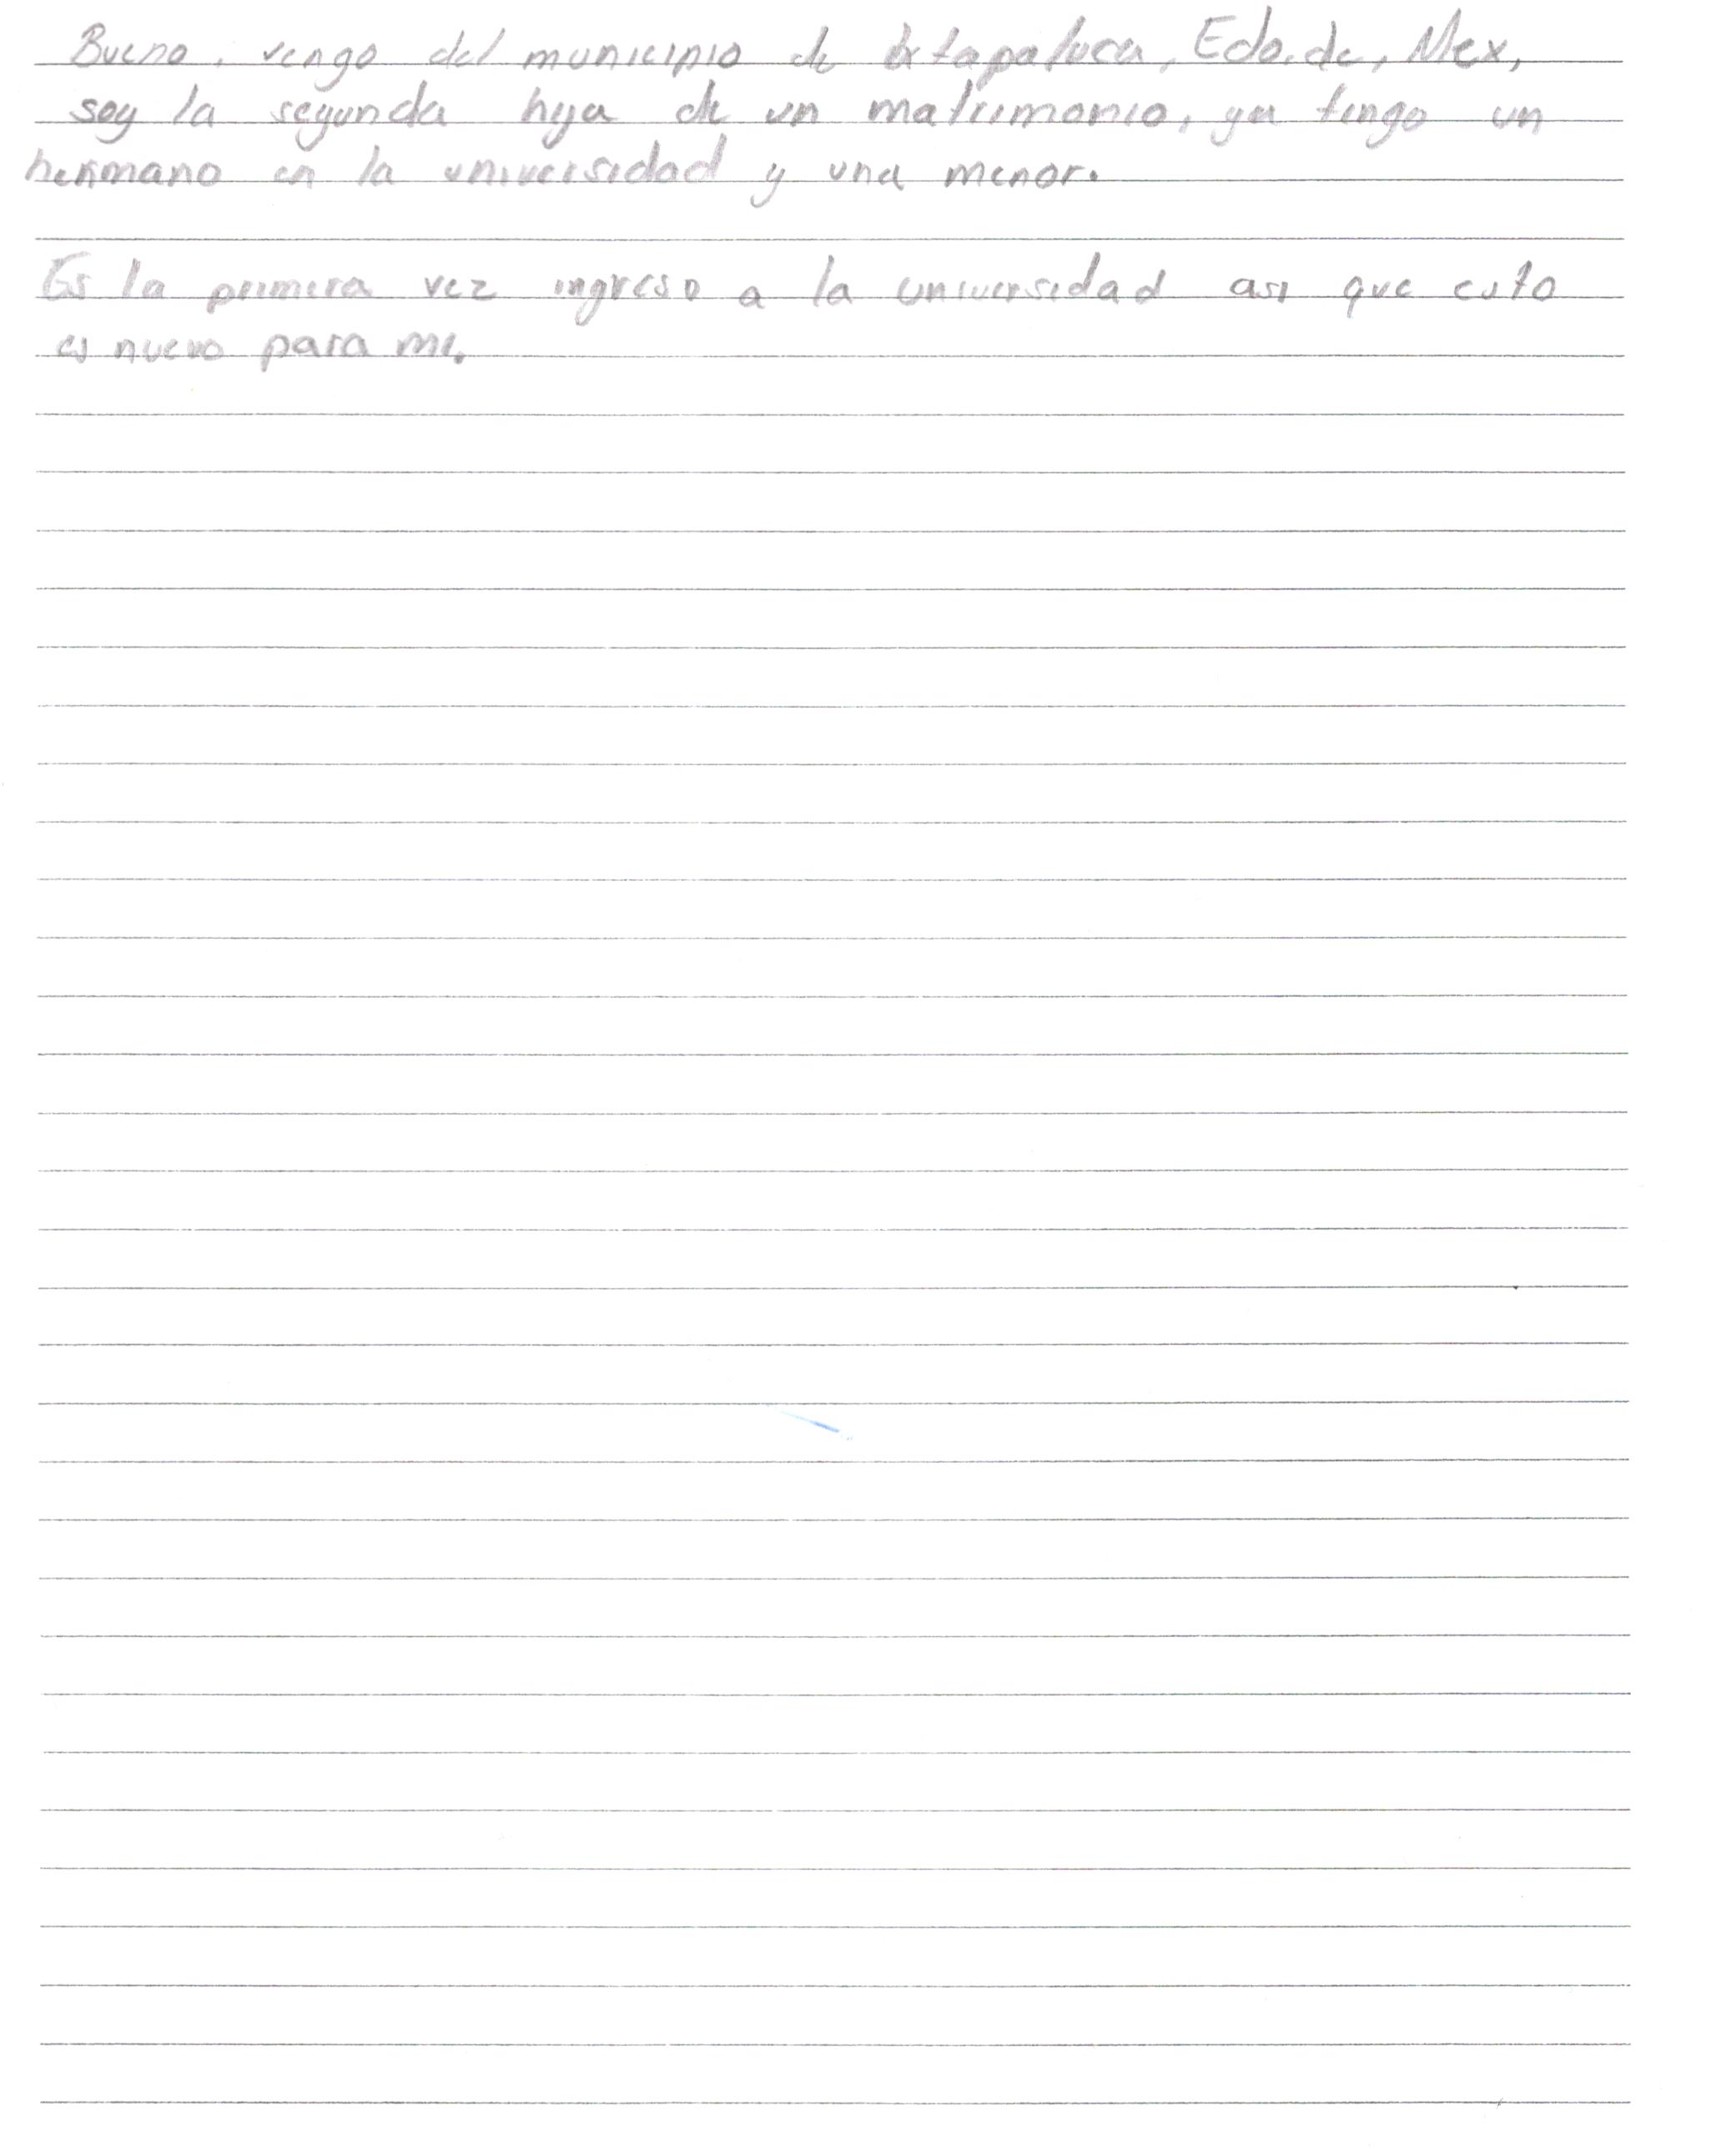 Bueno, vengo del municipio de Ixtapaluca, Edo. de, Mex,
soy la segunda hija de un matrimonio, ya tengo un
hermano en la universidad y una menor.
Es la primera vez ingreso a la universidad asi que esto
es nuevo para mi.